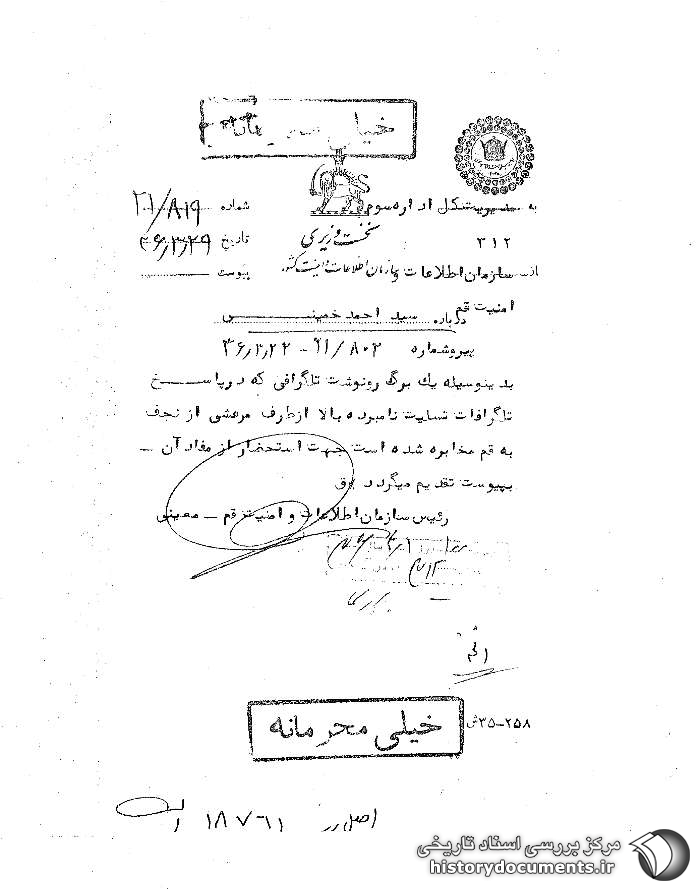 خیلی محرمانه
به مدیریت کل اداره سوم
۳۱۲
از سازمان اطلاعات و
امنیت قم
نخست وزیری
سازمان اطلاعات و امنیت کشور
شماره ۲۱/۸۱۹
تاریخ ۳۶/۳/۲۹
پیوست
درباره سید احمد خمینی
پیرو شماره ۲۱/۸۰۲ - ۳۶/۳/۲۲
بدینوسیله یک برگ رونوشت تلگرافی که در پاسخ
تلگرافات تسلیت نامبرده بالا از طرف مرعشی از نجف
به قم مخابره شده است جهت استحضار از مفاد آن
بپیوست تقدیم میگردد
رئیس سازمان اطلاعات و امنیت قم - معینی
۲۵۸-۳۵ش
خیلی محرمانه
۱۸۷۶۱
مرکز بررسی اسناد تاریخی
historydocuments.ir